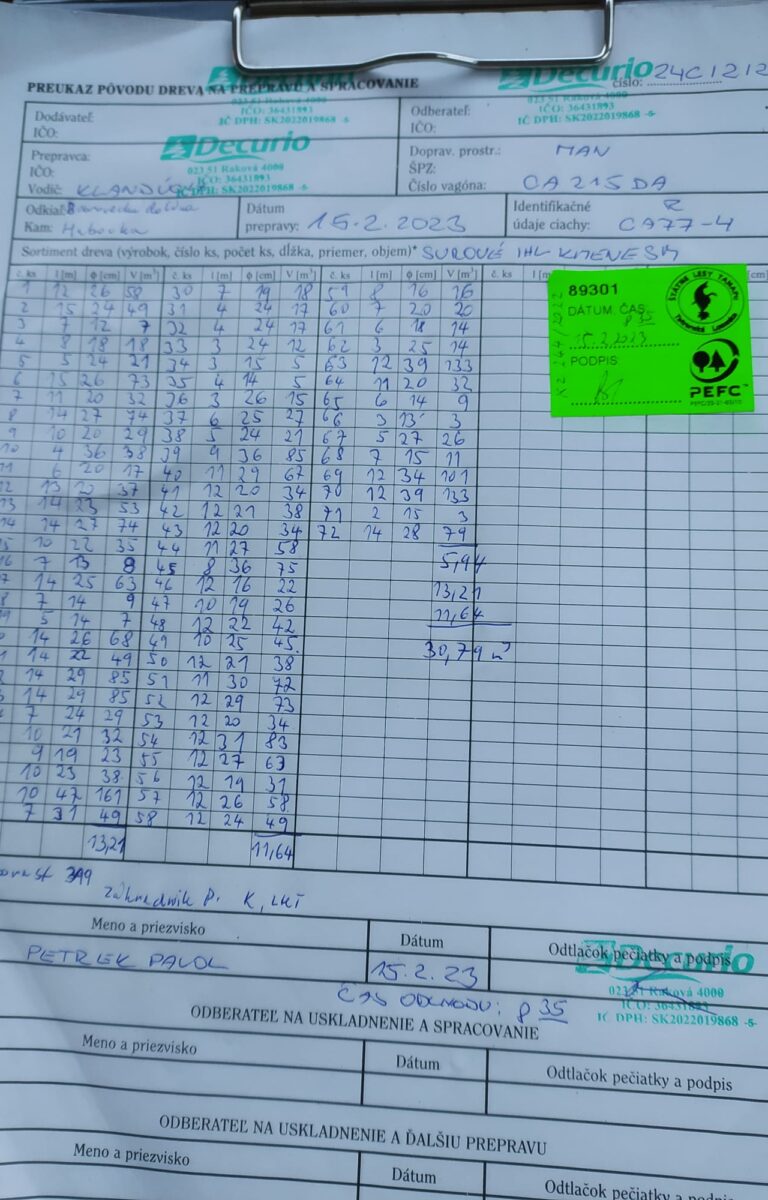 Decurio
číslo: 24C1212
PREUKAZ PÔVODU DREVA NA PREPRAVU A SPRACOVANIE
023 51 Raková 4000
IČO: 36431893
IČ DPH: SK2022019868 -5-
023 51 Raková 4000
IČO: 36431893
IČ DPH: SK2022019868 -5-
Dodávateľ:
IČO:
Odberateľ:
IČO:
Decurio
023 51 Raková 4000
IČO: 36431893
IČ DPH: SK2022019868 -5-
Prepravca:
IČO:
Vodič:
Doprav. prostr.: MAN
ŠPZ:
Číslo vagóna: CA215DA
Odkiaľ:
Kam:
Dátum
prepravy: 15.2.2023
Identifikačné
údaje ciachy: CA77-4
Sortiment dreva (výrobok, číslo ks, počet ks, dĺžka, priemer, objem)* SUROVÉ IHL KMENE
č. ks l [m] ϕ [cm] V [m³] č. ks l [m] ϕ [cm] V [m³] č. ks l [m] ϕ [cm] V [m³] č. ks l [m]
1 12 26 58 30 7 19 18 59 8 16 16
2 15 24 49 31 4 24 17 60 7 20 20
3 7 12 7 32 4 24 17 61 6 18 14
4 8 18 18 33 3 24 12 62 3 25 14
5 5 24 21 34 3 15 5 63 12 39 133
6 15 26 73 35 4 14 5 64 11 20 32
7 11 20 32 36 3 26 15 65 6 14 9
8 14 27 74 37 6 25 27 66 3 13 3
9 10 20 29 38 5 24 21 67 5 27 26
10 4 36 38 39 9 36 85 68 7 15 11
11 6 20 17 40 11 29 67 69 12 34 101
12 13 37 41 12 20 34 70 12 39 133
13 14 23 53 42 12 21 38 71 2 15 3
14 14 27 74 43 12 20 34 72 14 28 79
10 22 35 44 11 27 58 5,94
7 13 8 45 8 36 75
14 25 63 46 12 16 22 13,21
7 14 9 47 10 19 26 11,64
5 14 7 48 12 22 42
14 26 68 49 10 25 45 30,79 m³
14 22 49 50 12 21 38
14 29 85 51 11 30 72
14 29 85 52 12 29 73
7 24 29 53 12 20 34
10 21 32 54 12 31 83
9 19 23 55 12 27 63
10 23 38 56 12 19 31
10 47 161 57 12 26 58
7 31 49 58 12 24 49
13,21 11,64
89301
DÁTUM, ČAS
8 35
15.2.2023
PODPIS:
ŠTÁTNE LESY TANAPU
Tatranská Lomnica
PEFC™
Záhradník P.
Meno a priezvisko
Dátum
Odtlačok pečiatky a podpis
PETREK PAVOL
15.2.23
Decurio
023 51 Raková 4000
IČO: 36431893
IČ DPH: SK2022019868 -5-
ČAS ODCHODU: 8 35
ODBERATEĽ NA USKLADNENIE A SPRACOVANIE
Meno a priezvisko
Dátum
Odtlačok pečiatky a podpis
ODBERATEĽ NA USKLADNENIE A ĎALŠIU PREPRAVU
Meno a priezvisko
Dátum
Odtlačok pečiatky a podpis